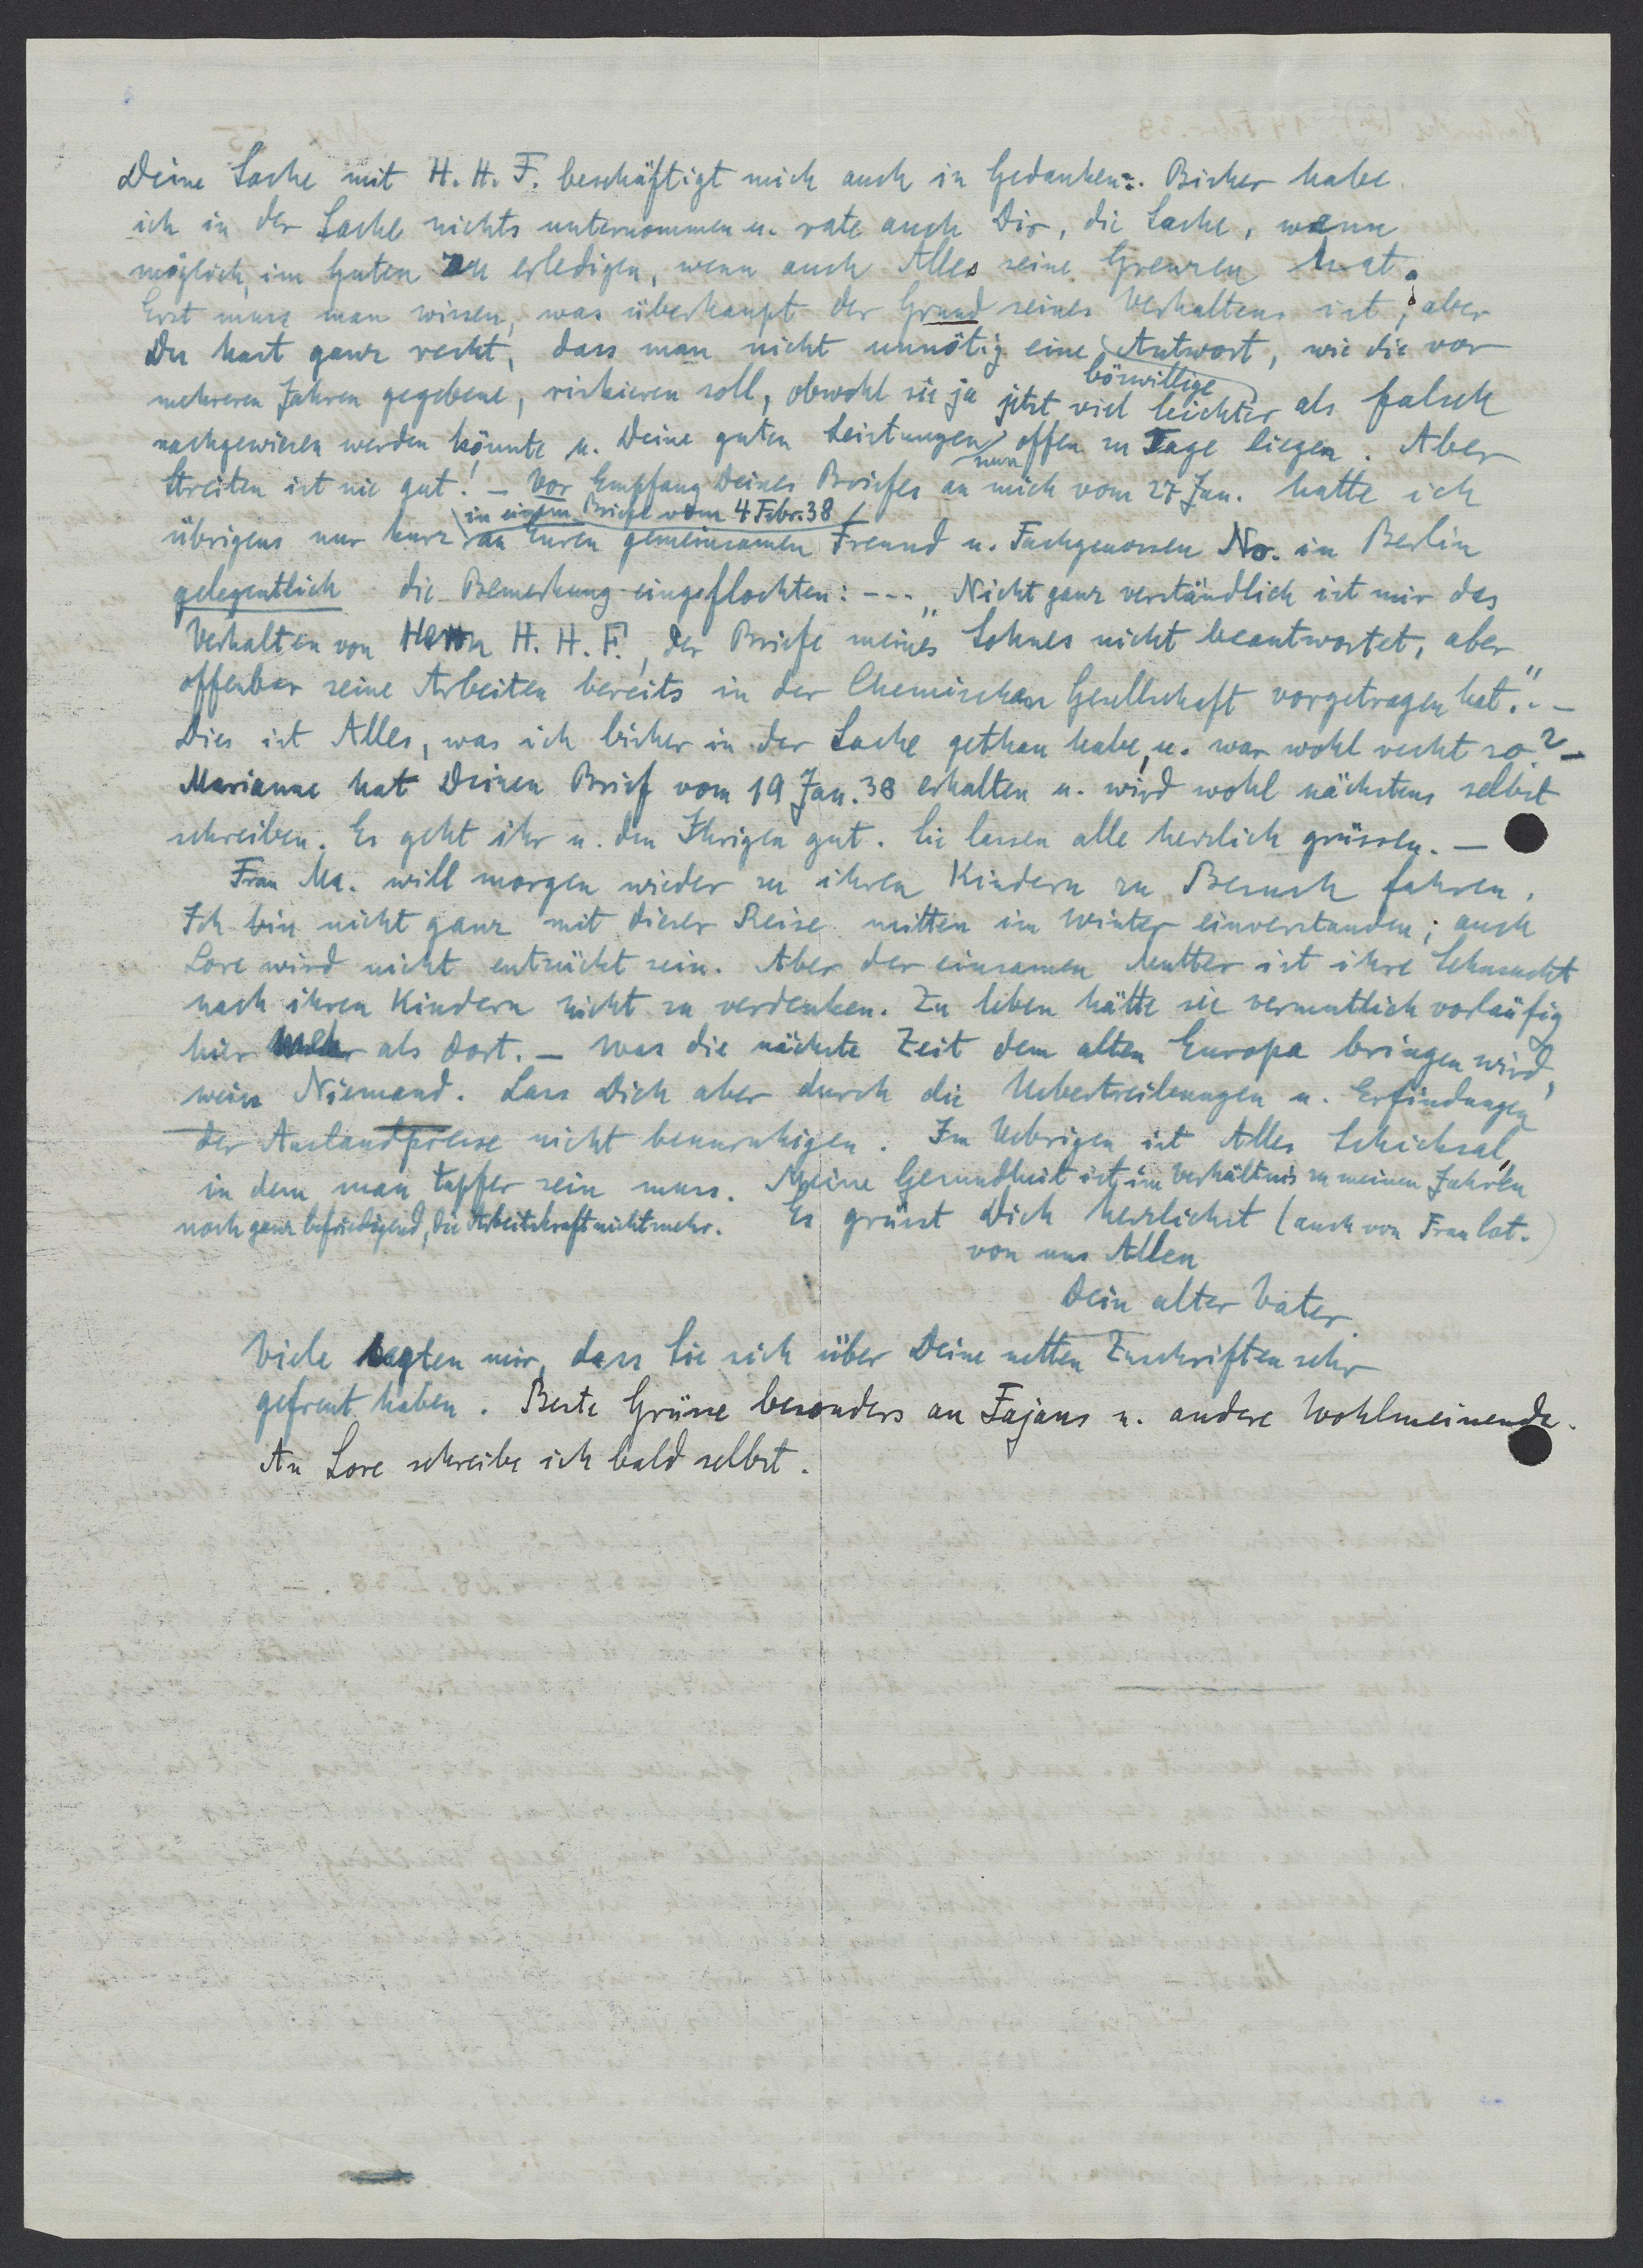 Deine Sache mit H. H. F. beschäftigt mich auch in Gedanken. Bisher habe
ich in der Sache nichts unternommen u. rate auch Dir, die Sache, wenn
möglich, im Guten zu erledigen, wenn auch Alles seine Grenzen hat.
Erst muss man wissen, was überhaupt der Grund seines Verhaltens ist; aber
Du hast ganz recht, dass man nicht unnötig eine Antwort, wie die vor
böswillige
mehreren Jahren gegebene, riskieren soll, obwohl sie ja jetzt viel leichter als falsch
nachgewiesen werden könnte u. Deine guten Leistungen offen zu Tage liegen. Aber
nun
Streiten ist nie gut! – Vor Empfang Deines Briefes an mich vom 27 Jan. hatte ich
in einem Briefe vom 4 Febr. 38
übrigens nur kurz an Euren gemeinsamen Freund u. Fachgenossen No. in Berlin
gelegentlich die Bemerkung eingeflochten: --- „Nicht ganz verständlich ist mir das
Verhalten von Herrn H. H. F., der Briefe meines Sohnes nicht beantwortet, aber
offenbar seine Arbeiten bereits in der Chemischen Gesellschaft vorgetragen hat." –
Dies ist Alles, was ich bisher in der Sache gethan habe, u. war wohl recht so? –
Marianne hat Deinen Brief vom 19 Jan. 38 erhalten u. wird wohl nächstens selbst
schreiben. Es geht ihr u. den Ihrigen gut. Sie lassen alle herzlich grüssen. –
Frau Ma. will morgen wieder zu ihren Kindern zu Besuch fahren.
Ich bin nicht ganz mit dieser Reise mitten im Winter einverstanden; auch
Lore wird nicht entzückt sein. Aber der einsamen Mutter ist ihre Sehnsucht
nach ihren Kindern nicht zu verdenken. Zu leben hätte sie vermutlich vorläufig
hier mehr als dort. – Was die nächste Zeit dem alten Europa bringen wird,
weiss Niemand. Lass Dich aber durch die Uebertreibungen u. Erfindungen
der Auslandpresse nicht beunruhigen. Im Uebrigen ist Alles Schicksal,
in dem man tapfer sein muss. Meine Gesundheit ist im Verhältnis zu meinen Jahren
noch ganz befriedigend, die Arbeitskraft nicht mehr. Es grüsst Dich herzlichst (auch von Frau Cat.)
von uns Allen
Dein alter Vater.
Viele sagten mir, dass Sie sich über Deine netten Zuschriften sehr
gefreut haben. Beste Grüsse besonders an Fajans u. andere Wohlmeinende.
An Lore schreibe ich bald selbst.